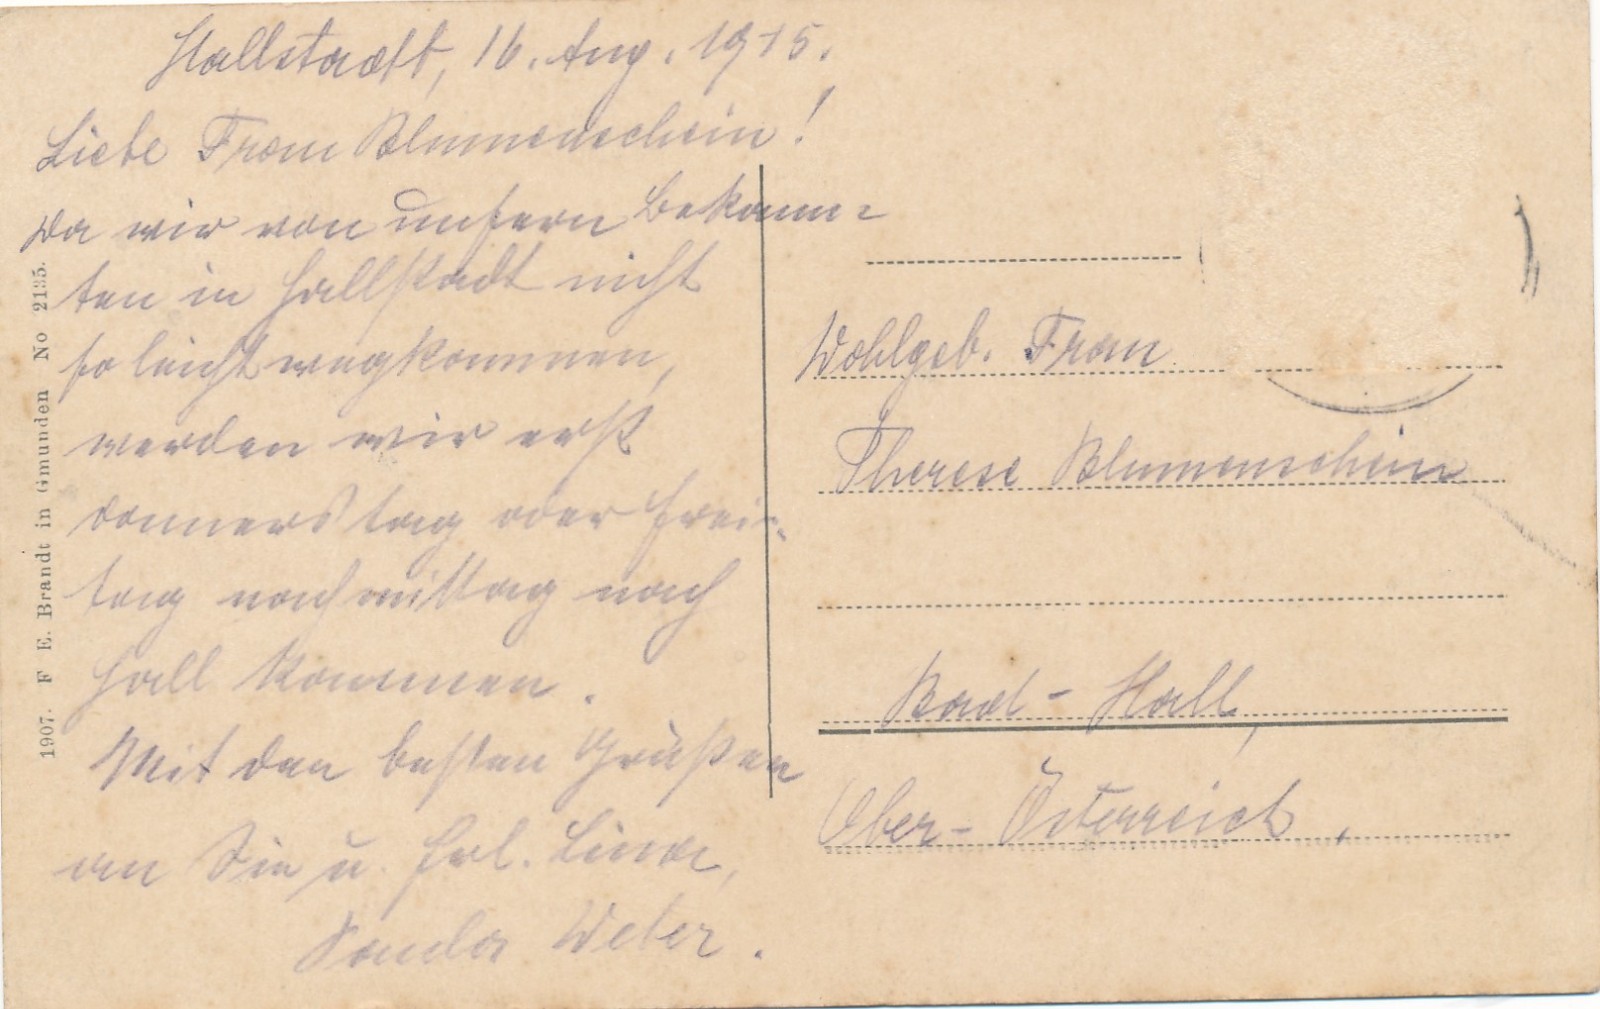 Hallstadt, 16. Aug. 1915.
Liebe Frau Blumenschein!
Da wir von unsern Bekann-
ten in Hallstadt nicht
so leicht wegkommen,
werden wir erst
Donnerstag oder Frei-
tag nachmittag nach
Hall kommen.
Mit den besten Grüßen
an Sie u. Frl. Lina,
Weber.
Wohlgeb. Frau
Therese Blumenschein
Bad-Hall,
Ober-Österreich,
1907. F. E. Brandt in Gmunden No 2135.